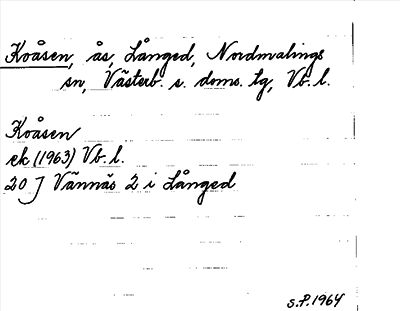 Koåsen, ås, Långed, Nordmalings
sn, Västerb. s. doms. tg, Vb. l.
Koåsen
ek (1963) Vb. l.
20 J Vännäs 2 i Långed
S.P. 1964